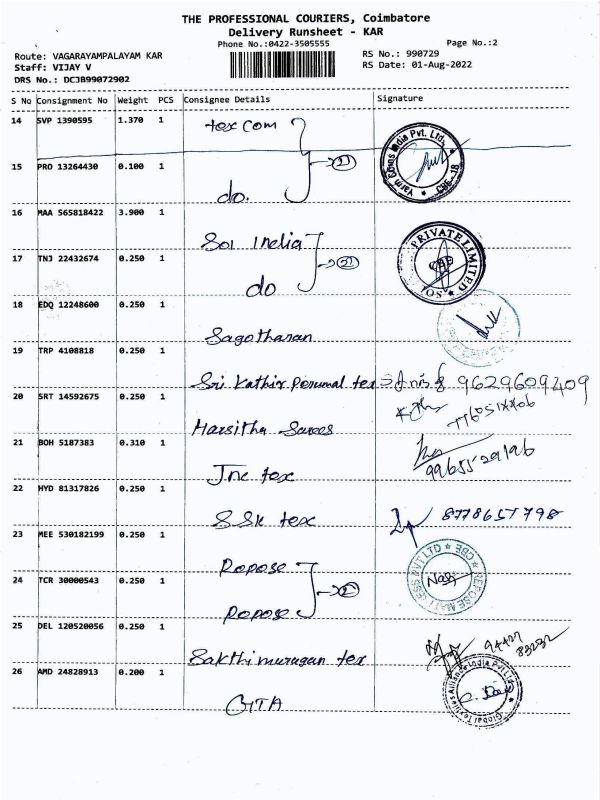 THE PROFESSIONAL COURIERS, Coimbatore
Delivery Runsheet - KAR
Phone No.:0422-3505555
Page No.:2
Route: VAGARAYAMPALAYAM KAR
RS No.: 990729
Staff: VIJAY V
RS Date: 01-Aug-2022
DRS No.: DCJB99072902
S No Consignment No Weight PCS Consignee Details Signature
14 SVP 1390595 1.370 1 tex com
15 PRO 13264430 0.100 1 do.
Yarn Ethics India Pvt. Ltd. CBE-18
16 MAA 565818422 3.900 1 Sol India
17 TNJ 22432674 0.250 1 do
PRIVATE LIMITED
18 EDQ 12248600 0.250 1 Sagotharan
19 TRP 4108818 0.250 1 Sri Kathir Perumal tex 9629609409
20 SRT 14592675 0.250 1 Harsitha Sarees
21 BOH 5187383 0.310 1 Jnc tex 9965529196
22 HYD 81317826 0.250 1 SSK tex 8778657798
23 MEE 530182199 0.250 1 Repose
24 TCR 30000543 0.250 1 Repose
REPOSE MATTRESS PVT LTD CBE
25 DEL 120520056 0.250 1 Sakthi murugan tex
26 AMD 24828913 0.200 1 GTA
Global Textiles Alliance India Pvt Ltd